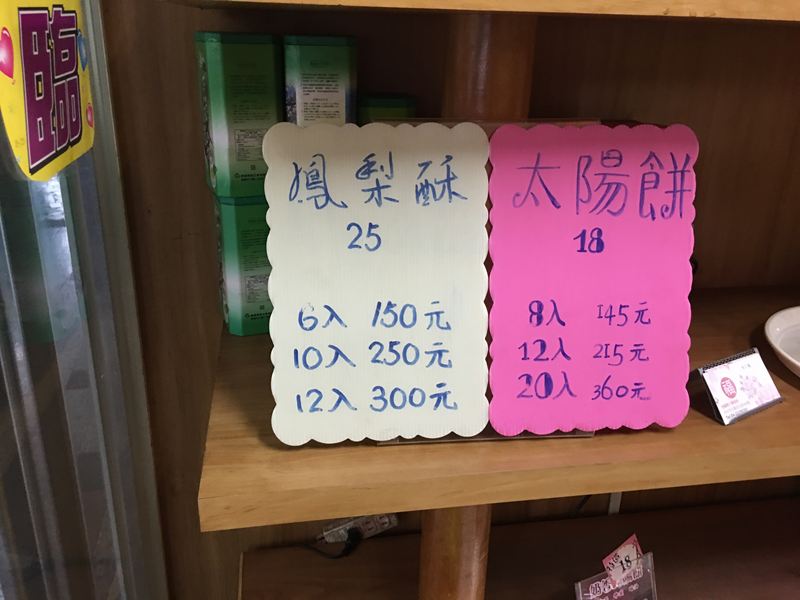 臨
鳳梨酥
25
6入 150元
10入 250元
12入 300元
太陽餅
18
8入 145元
12入 215元
20入 360元
18